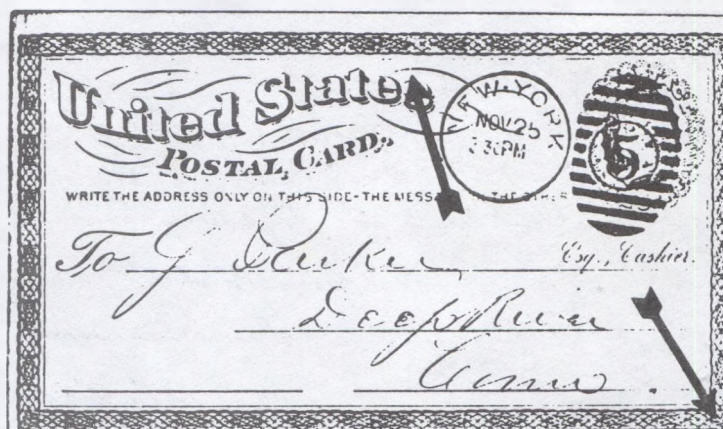 United States
POSTAL CARD.
NEW-YORK
NOV 25
3 30 PM
5
WRITE THE ADDRESS ONLY ON THIS SIDE - THE MESS THE OTHER
To G Parker Esq., Cashier.
Deep River
Conn.